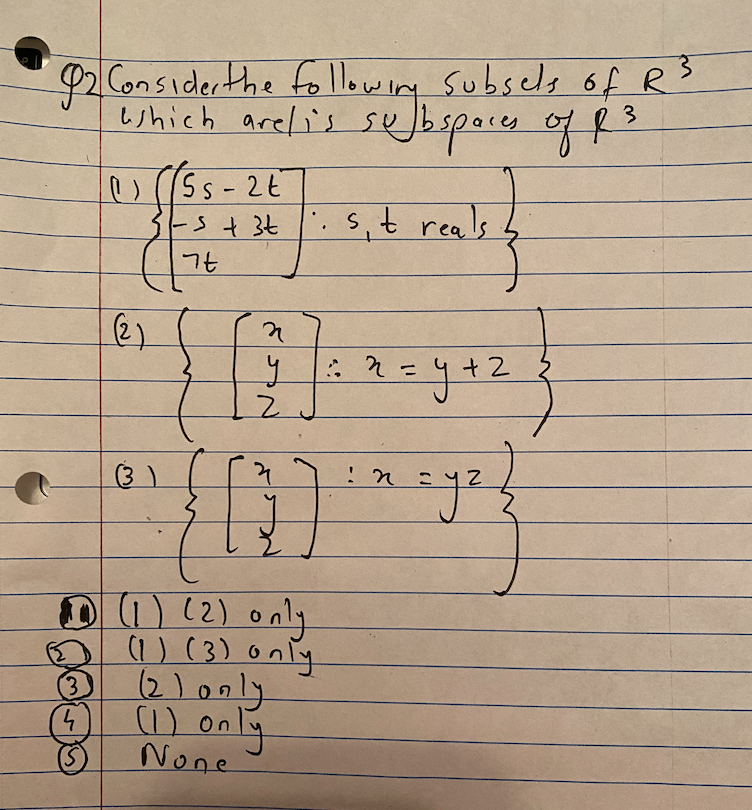 Q2 Consider the following subsets of R³
which are/is subspaces of R³
(1) { [ 5s - 2t
-s + 3t : s, t reals }
7t ]
(2) { [ x
y : x = y + z }
z ]
(3) { [ x : x = yz }
y
z ]
(1) (2) only
② (1) (3) only
③ (2) only
④ (1) only
⑤ None